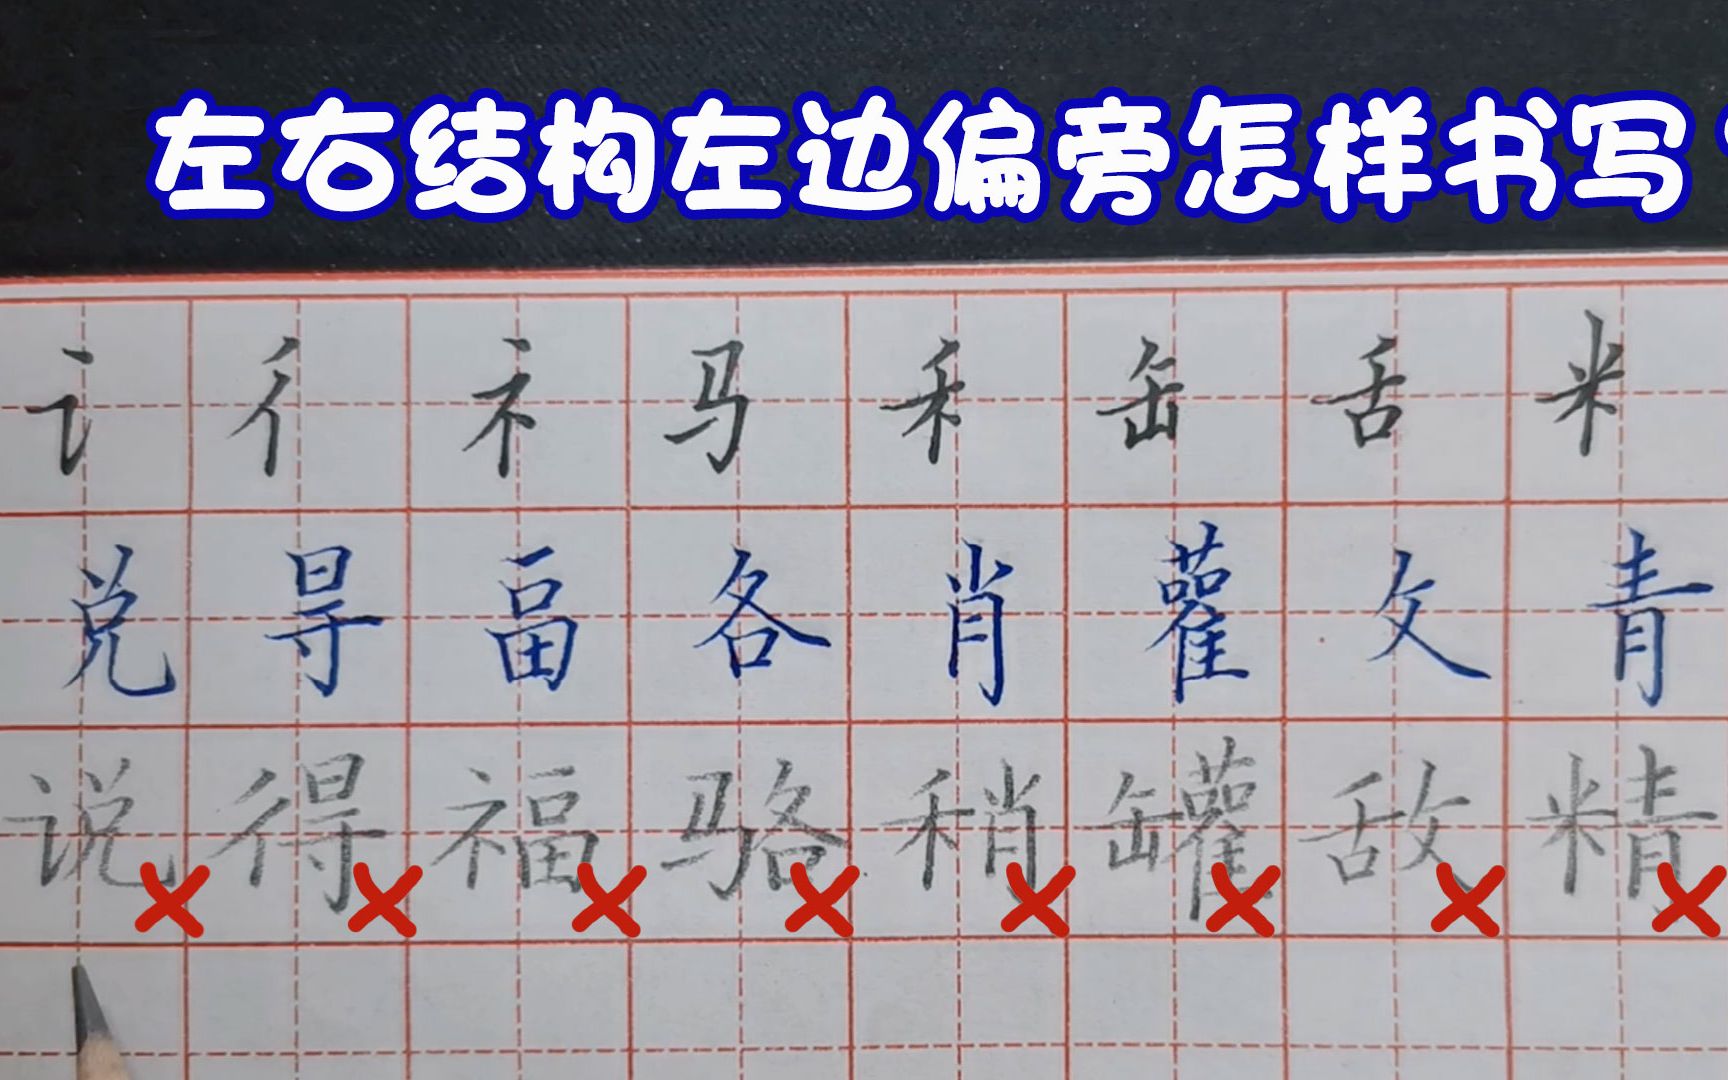 左右结构左边偏旁怎样书写？
讠 彳 礻 马 禾 缶 舌 米
兑 㝵 畐 各 肖 雚 攵 青
说 得 福 骆 稍 罐 敌 精